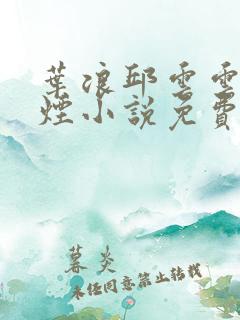 葉浪邱雲雲
煙小說免費
暮炎
未经同意禁止转载